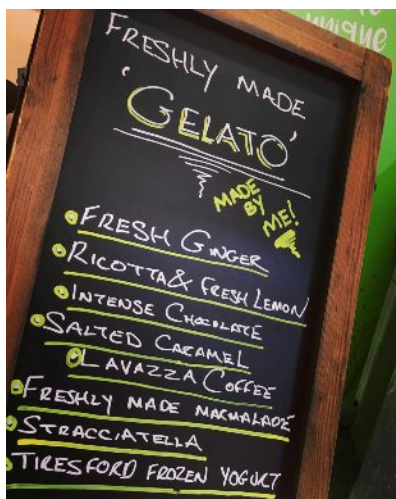 unique
FRESHLY MADE
'GELATO'
MADE
BY
ME!
FRESH GINGER
RICOTTA & FRESH LEMON
INTENSE CHOCOLATE
SALTED CARAMEL
LAVAZZA COFFEE
FRESHLY MADE MARMALADE
STRACCIATELLA
TIRESFORD FROZEN YOGURT